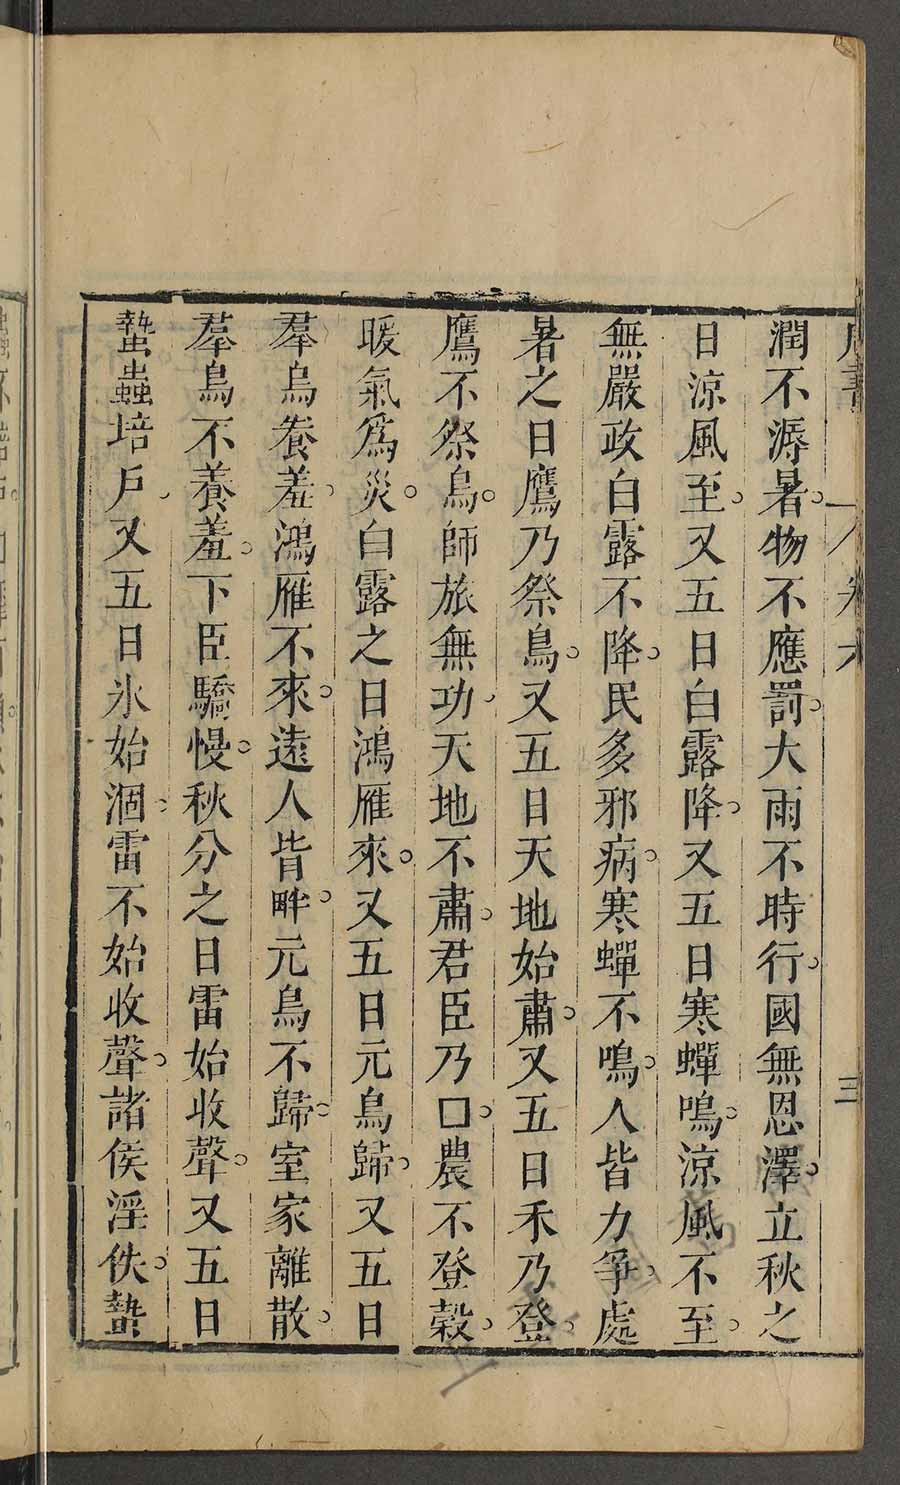 周書　卷六　三
潤不溽暑。物不應罰。大雨不時行。國無恩澤。立秋之
日涼風至。又五日白露降。又五日寒蟬鳴。涼風不至。
無嚴政白露不降。民多邪病。寒蟬不鳴。人皆力爭。處
暑之日鷹乃祭鳥。又五日天地始肅。又五日禾乃登。
鷹不祭鳥。師旅無功、天地不肅。君臣乃口。農不登穀。
暖氣為災。白露之日鴻雁來。又五日元鳥歸。又五日
羣鳥養羞。鴻雁不來。遠人皆畔。元鳥不歸。室家離散。
羣鳥不養羞。下臣驕慢。秋分之日雷始收聲。又五日
蟄蟲培戶、又五日氷始涸。雷不始收聲。諸侯淫佚。蟄